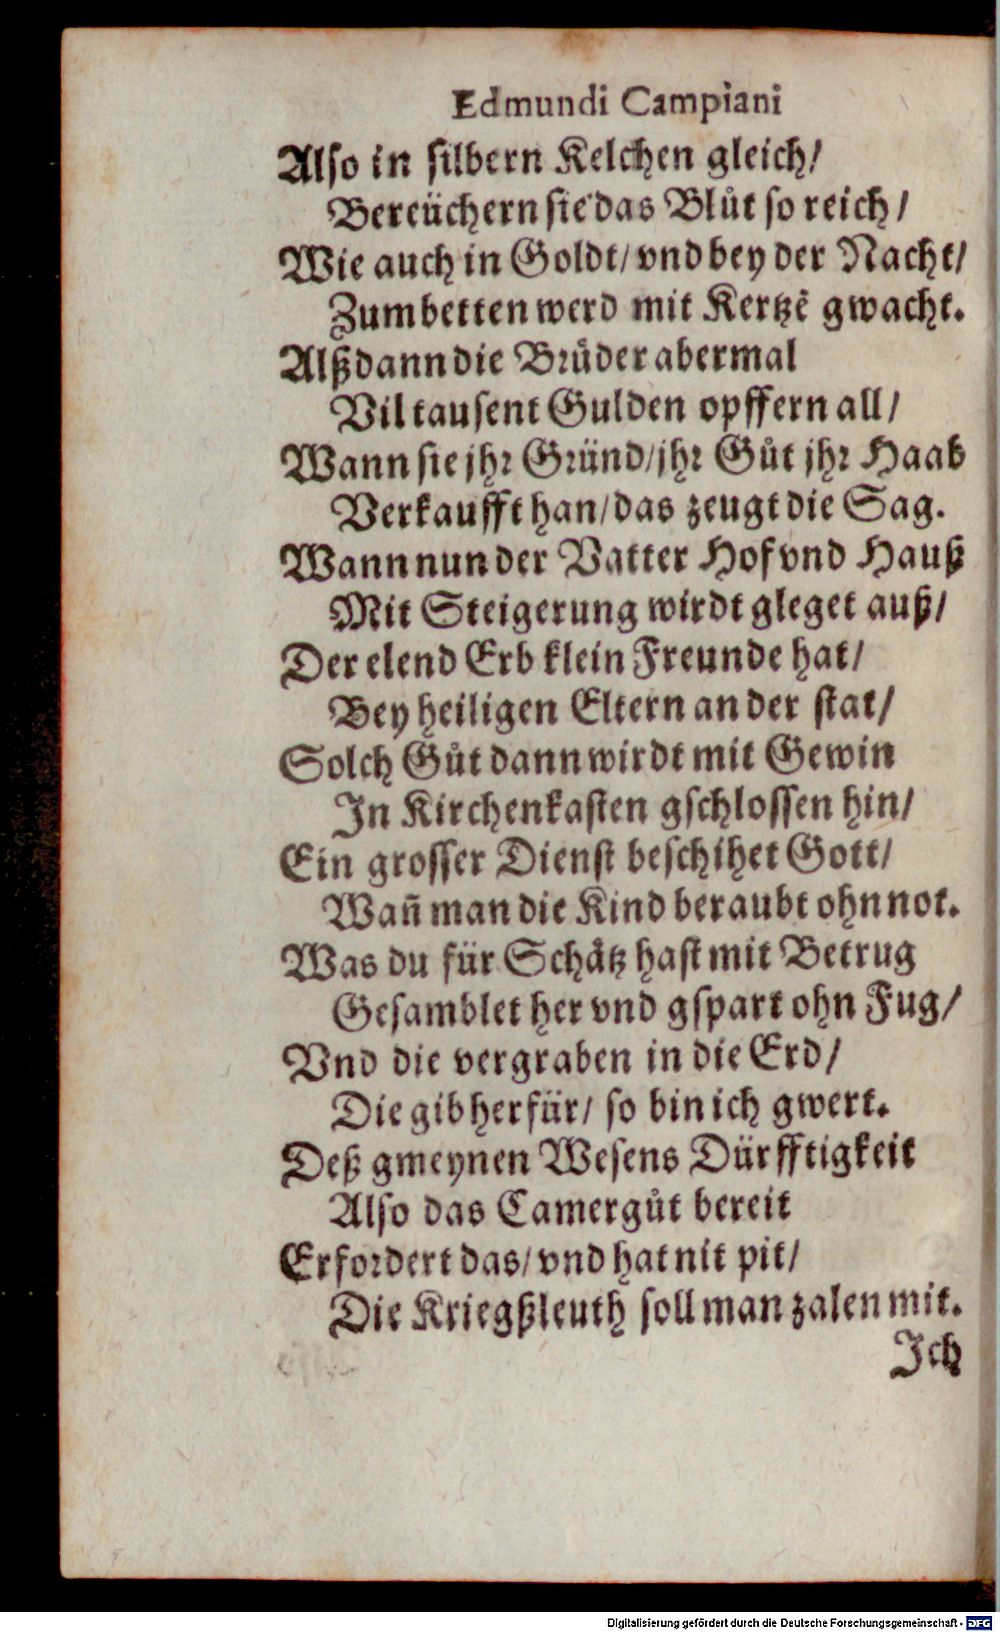 Edmundi Campiani
Also in silbern Kelchen gleich/
Bereüchern sie das Blůt so reich/
Wie auch in Goldt/ vnd bey der Nacht/
Zum betten werd mit Kertzẽ gwacht.
Alßdann die Brůder abermal
Vil tausent Gulden opffern all/
Wann sie jhr Gründ/ jhr Gůt jhr Haab
Verkaufft han/ das zeugt die Sag.
Wann nun der Vatter Hof vnd Hauß
Mit Steigerung wirdt gleget auß/
Der elend Erb klein Freunde hat/
Bey heiligen Eltern an der stat/
Solch Gůt dann wirdt mit Gewin
In Kirchenkasten gschlossen hin/
Ein grosser Dienst beschihet Gott/
Wañ man die Kind beraubt ohn not.
Was du für Schåtz hast mit Betrug
Gesamblet her vnd gspart ohn Fug/
Vnd die vergraben in die Erd/
Die gib herfür/ so bin ich gwert.
Deß gmeynen Wesens Dürfftigkeit
Also das Camergůt bereit
Erfordert das/ vnd hat nit pit/
Die Kriegßleuth soll man zalen mit.
Ich
Digitalisierung gefördert durch die Deutsche Forschungsgemeinschaft - DFG